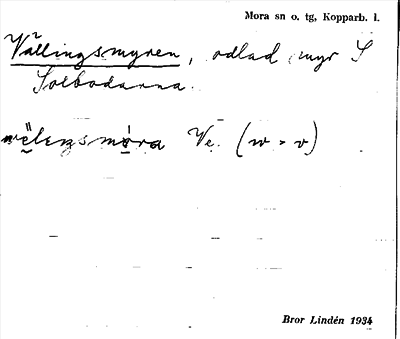 Mora sn o. tg, Kopparb. l.
Vällingsmyren, odlad myr S
Solbodarna.
Ve. (w > v)
Bror Lindén 1934